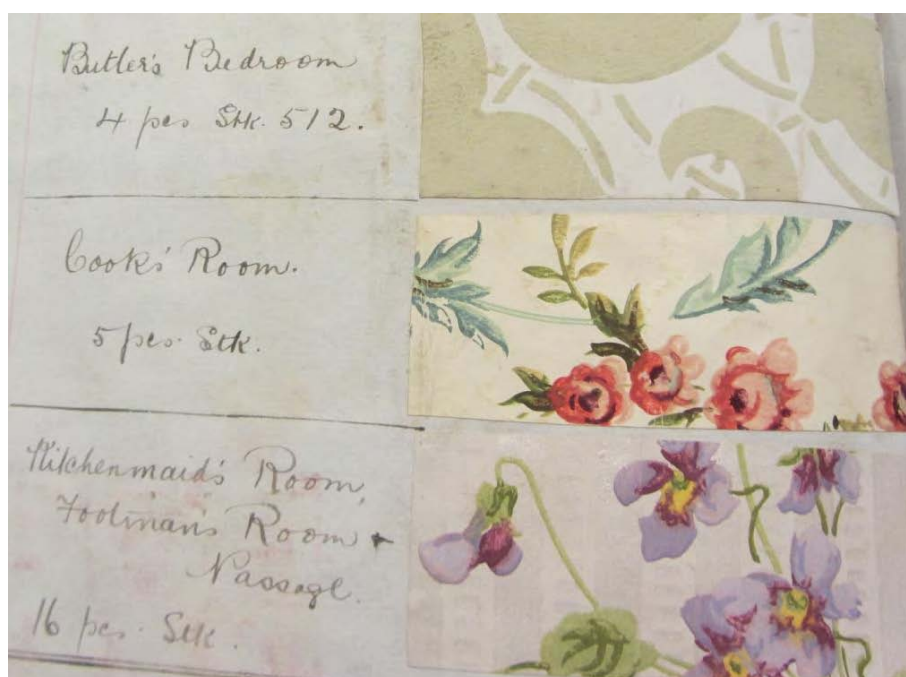 Butler's Bedroom
4 pcs Stk. 512.
Cook's Room.
5 pcs. Stk.
Kitchenmaid's Room,
Footman's Room +
Passage.
16 pcs. Stk.